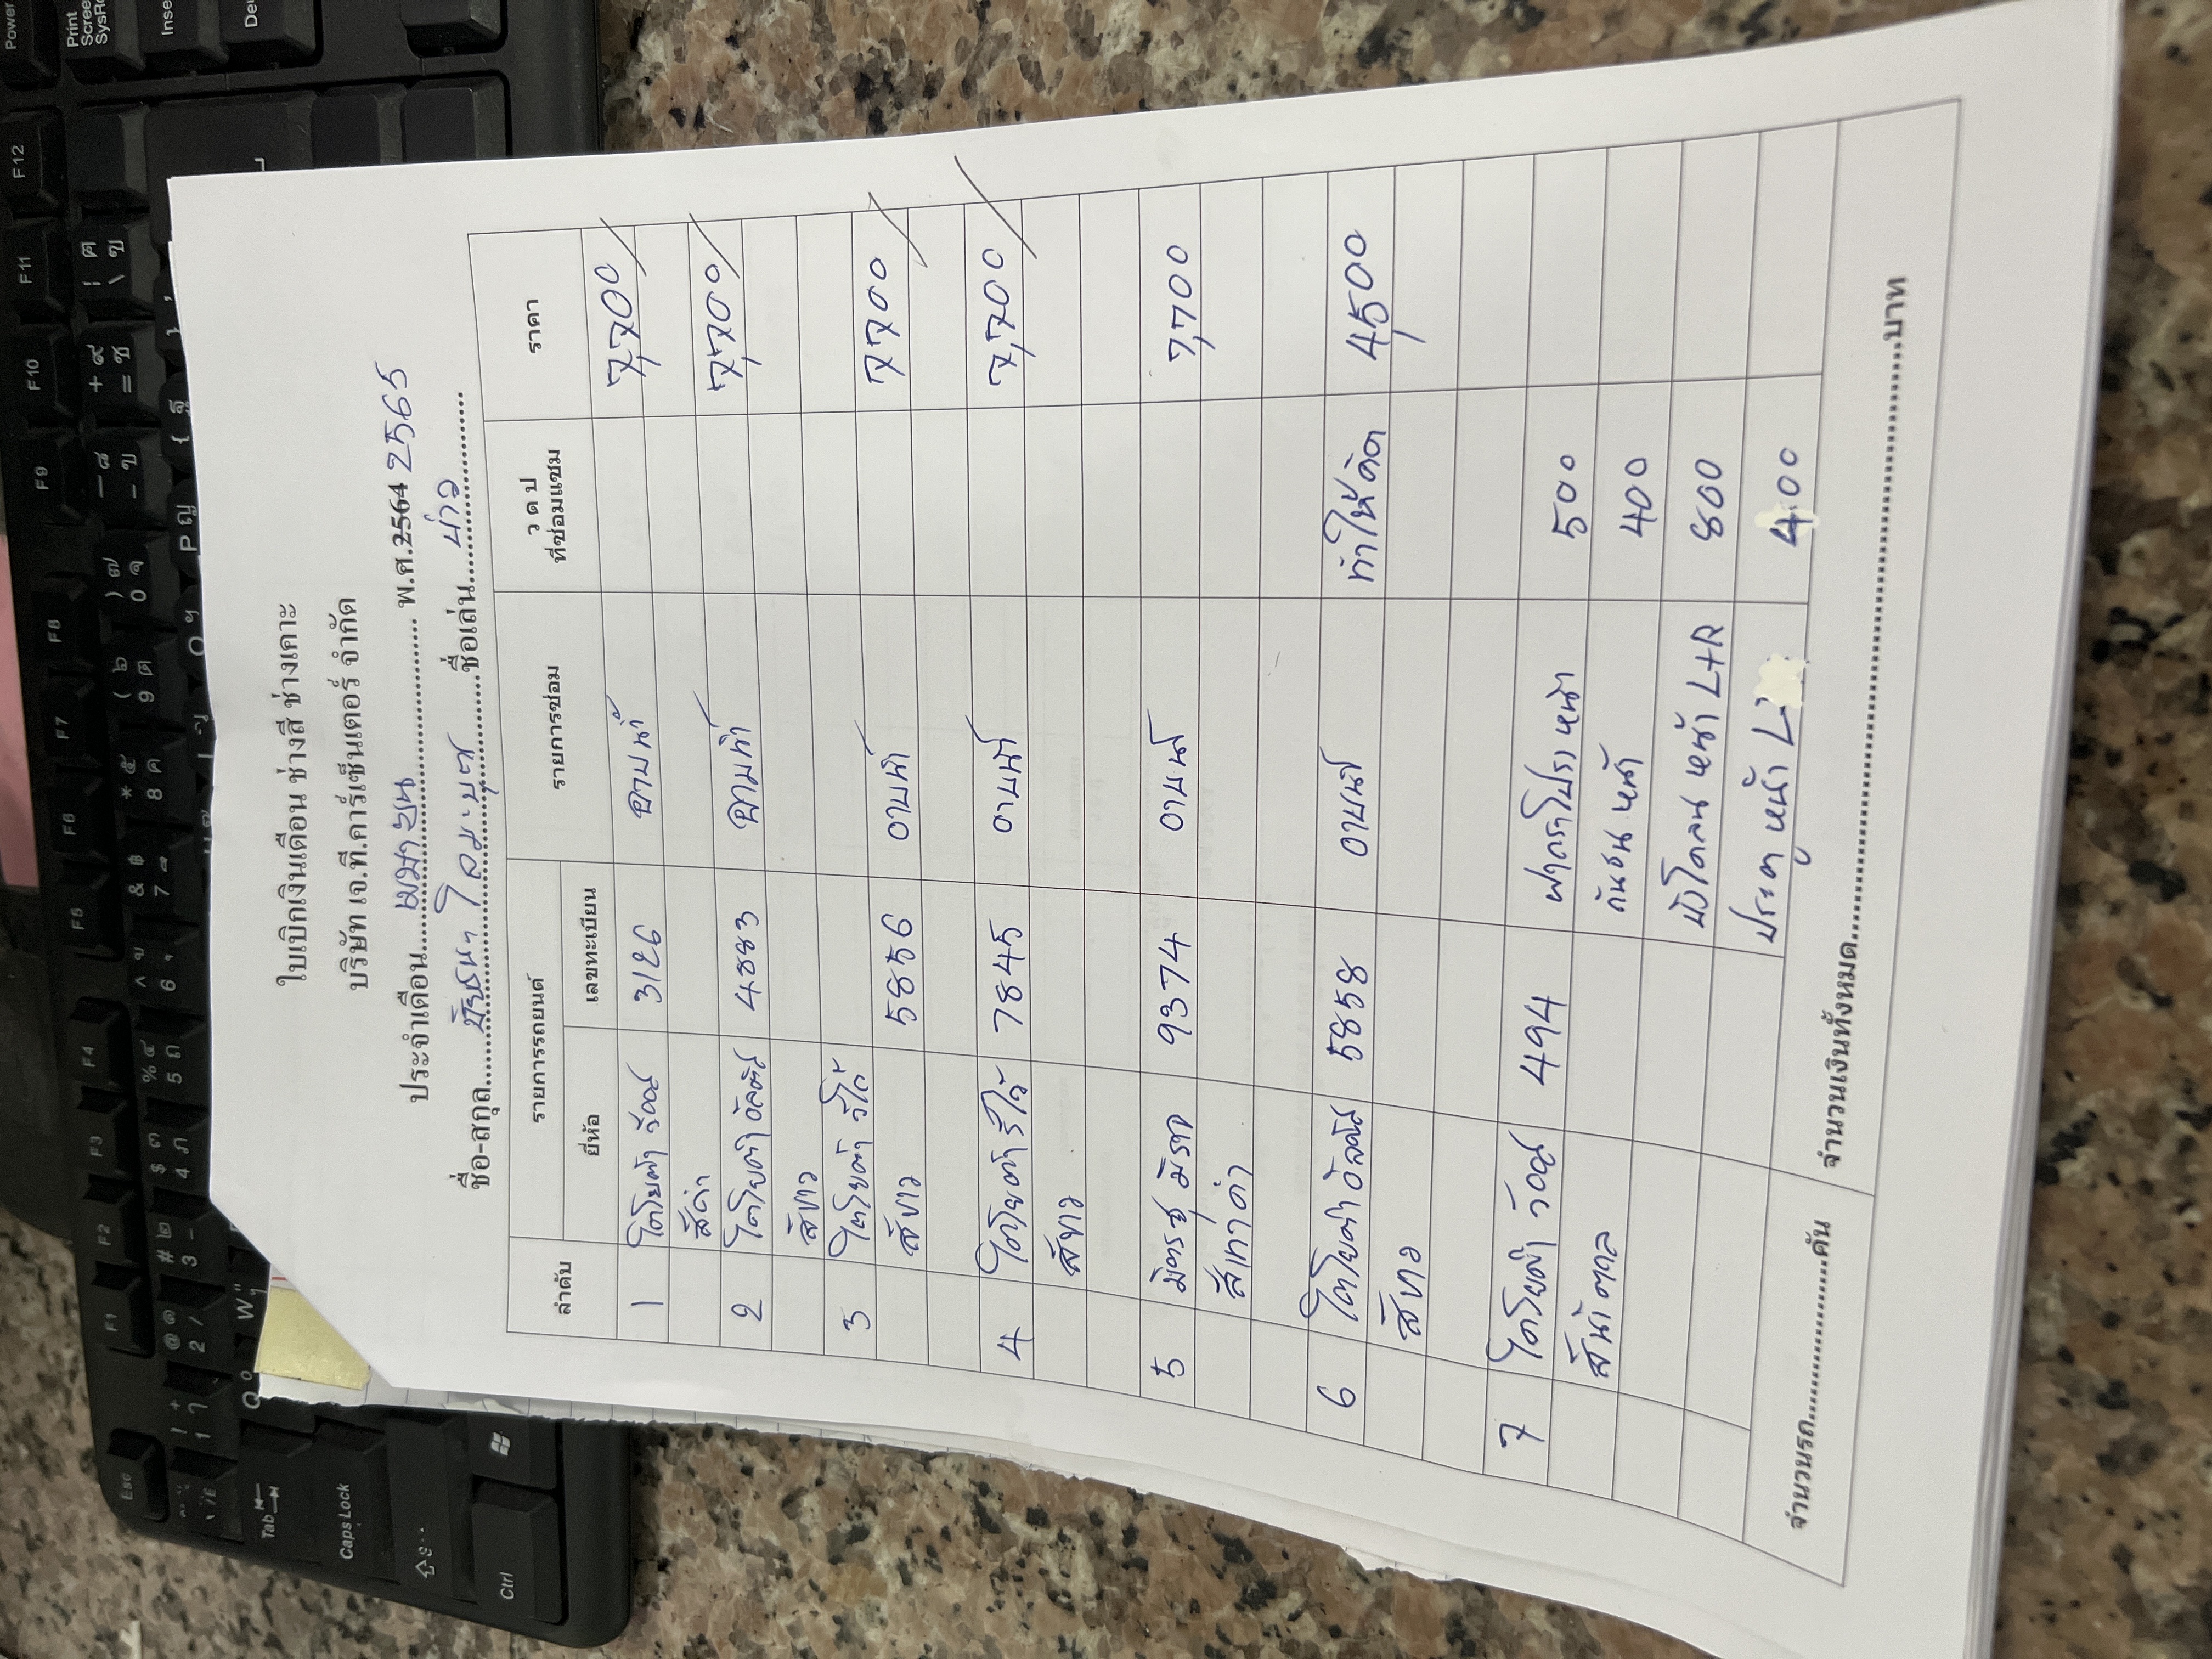 ใบเบิกเงินเดือน ช่างสี ช่างเคาะ
บริษัท เจ.ที.คาร์เซ็นเตอร์ จำกัด
ประจำเดือน เมษายน พ.ศ.2564 2565
ชื่อ-สกุล ชื่อเล่น
ลำดับ รายการรถยนต์ รายการซ่อม ว ด ป ที่ซ่อมแซม ราคา
ยี่ห้อ เลขทะเบียน
1 โตโยต้า วีออส 3126 อาบน้ำ 7,700
สีดำ
2 โตโยต้า อัลติส 4883 อาบน้ำ 7,700
สีขาว
3 โตโยต้า วีโก้
สีขาว 5856 อาบน้ำ 7700
4 โตโยต้า รีโว้ 7845 อาบน้ำ 7,700
สีขาว
5 มิตซู มิราจ 9374 อาบน้ำ 7,700
สีเทาดำ
6 โตโยต้า อัลติส 5858 อาบน้ำ ทำให้ดิด 4,500
สีขาว
7 โตโยต้า วีออส 494 ฝากระโปรงหน้า 500
สีน้ำตาล กันชนหน้า 400
บังโคลนหน้า L+R 800
ประตูหน้า L 400
จำนวนรถ คัน จำนวนเงินทั้งหมด บาท
Power
Print Screen SysRq
F12
F11
F10
F9
F8
F7
F6
F5
F4
F3
F2
F1
Esc
Tab
Caps Lock
Ctrl